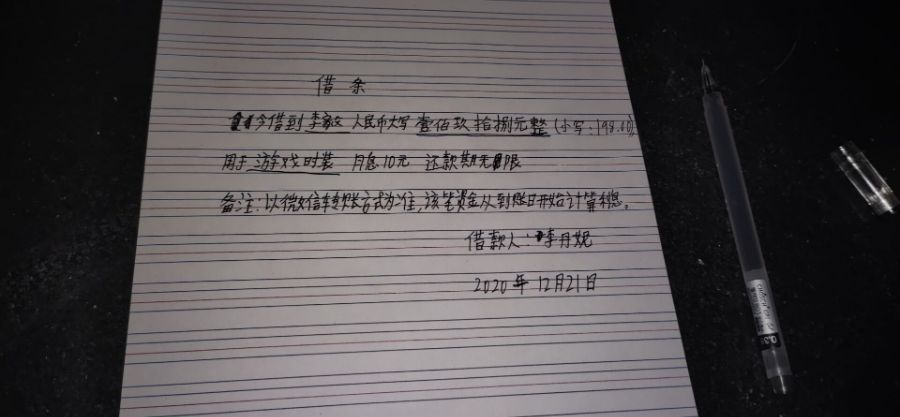 借条
今借到李毅 人民币大写 壹佰玖拾捌元整 (小写:198.00)
用于游戏时装 月息10元 还款期无限
备注:以微信转账方式为准,该笔资金从到账日开始计算利息。
借款人:李丹妮
2020年12月21日